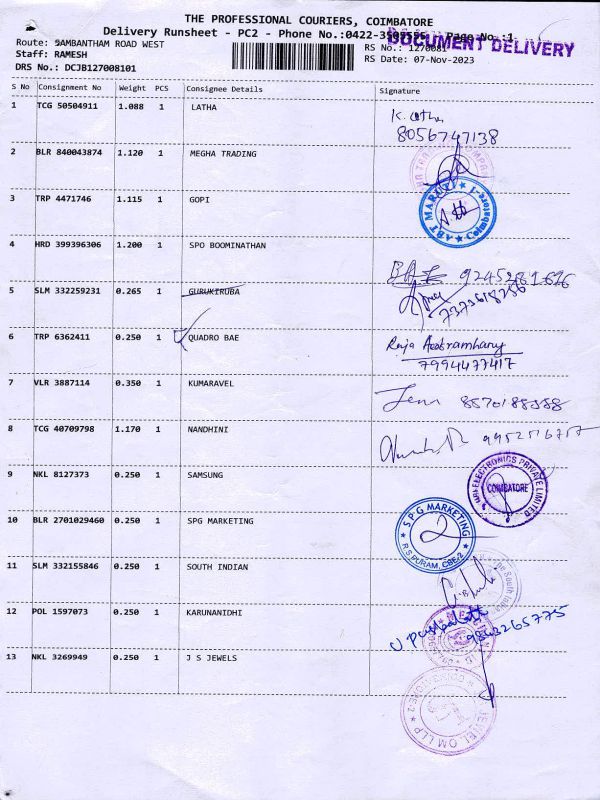 THE PROFESSIONAL COURIERS, COIMBATORE
Delivery Runsheet - PC2 - Phone No.:0422- Page No.:1
DOCUMENT DELIVERY
Route: SAMBANTHAM ROAD WEST
RS No.: 1270081
Staff: RAMESH
RS Date: 07-Nov-2023
DRS No.: DCJB127008101
S No Consignment No Weight PCS Consignee Details Signature
1 TCG 50504911 1.088 1 LATHA
8056747138
2 BLR 840043874 1.120 1 MEGHA TRADING
3 TRP 4471746 1.115 1 GOPI
ABT MARUTI Coimbatore
4 HRD 399396306 1.200 1 SPO BOOMINATHAN
5 SLM 332259231 0.265 1 GURUKIRUBA
6 TRP 6362411 0.250 1 QUADRO BAE
Raja
7994477417
7 VLR 3887114 0.350 1 KUMARAVEL
8 TCG 40709798 1.170 1 NANDHINI
9 NKL 8127373 0.250 1 SAMSUNG
ELECTRONICS PRIVATE LIMITED
COIMBATORE
10 BLR 2701029460 0.250 1 SPG MARKETING
SPG MARKETING
R S PURAM, CBE-2
11 SLM 332155846 0.250 1 SOUTH INDIAN
The South
12 POL 1597073 0.250 1 KARUNANIDHI
9843265775
13 NKL 3269949 0.250 1 J S JEWELS
LLP